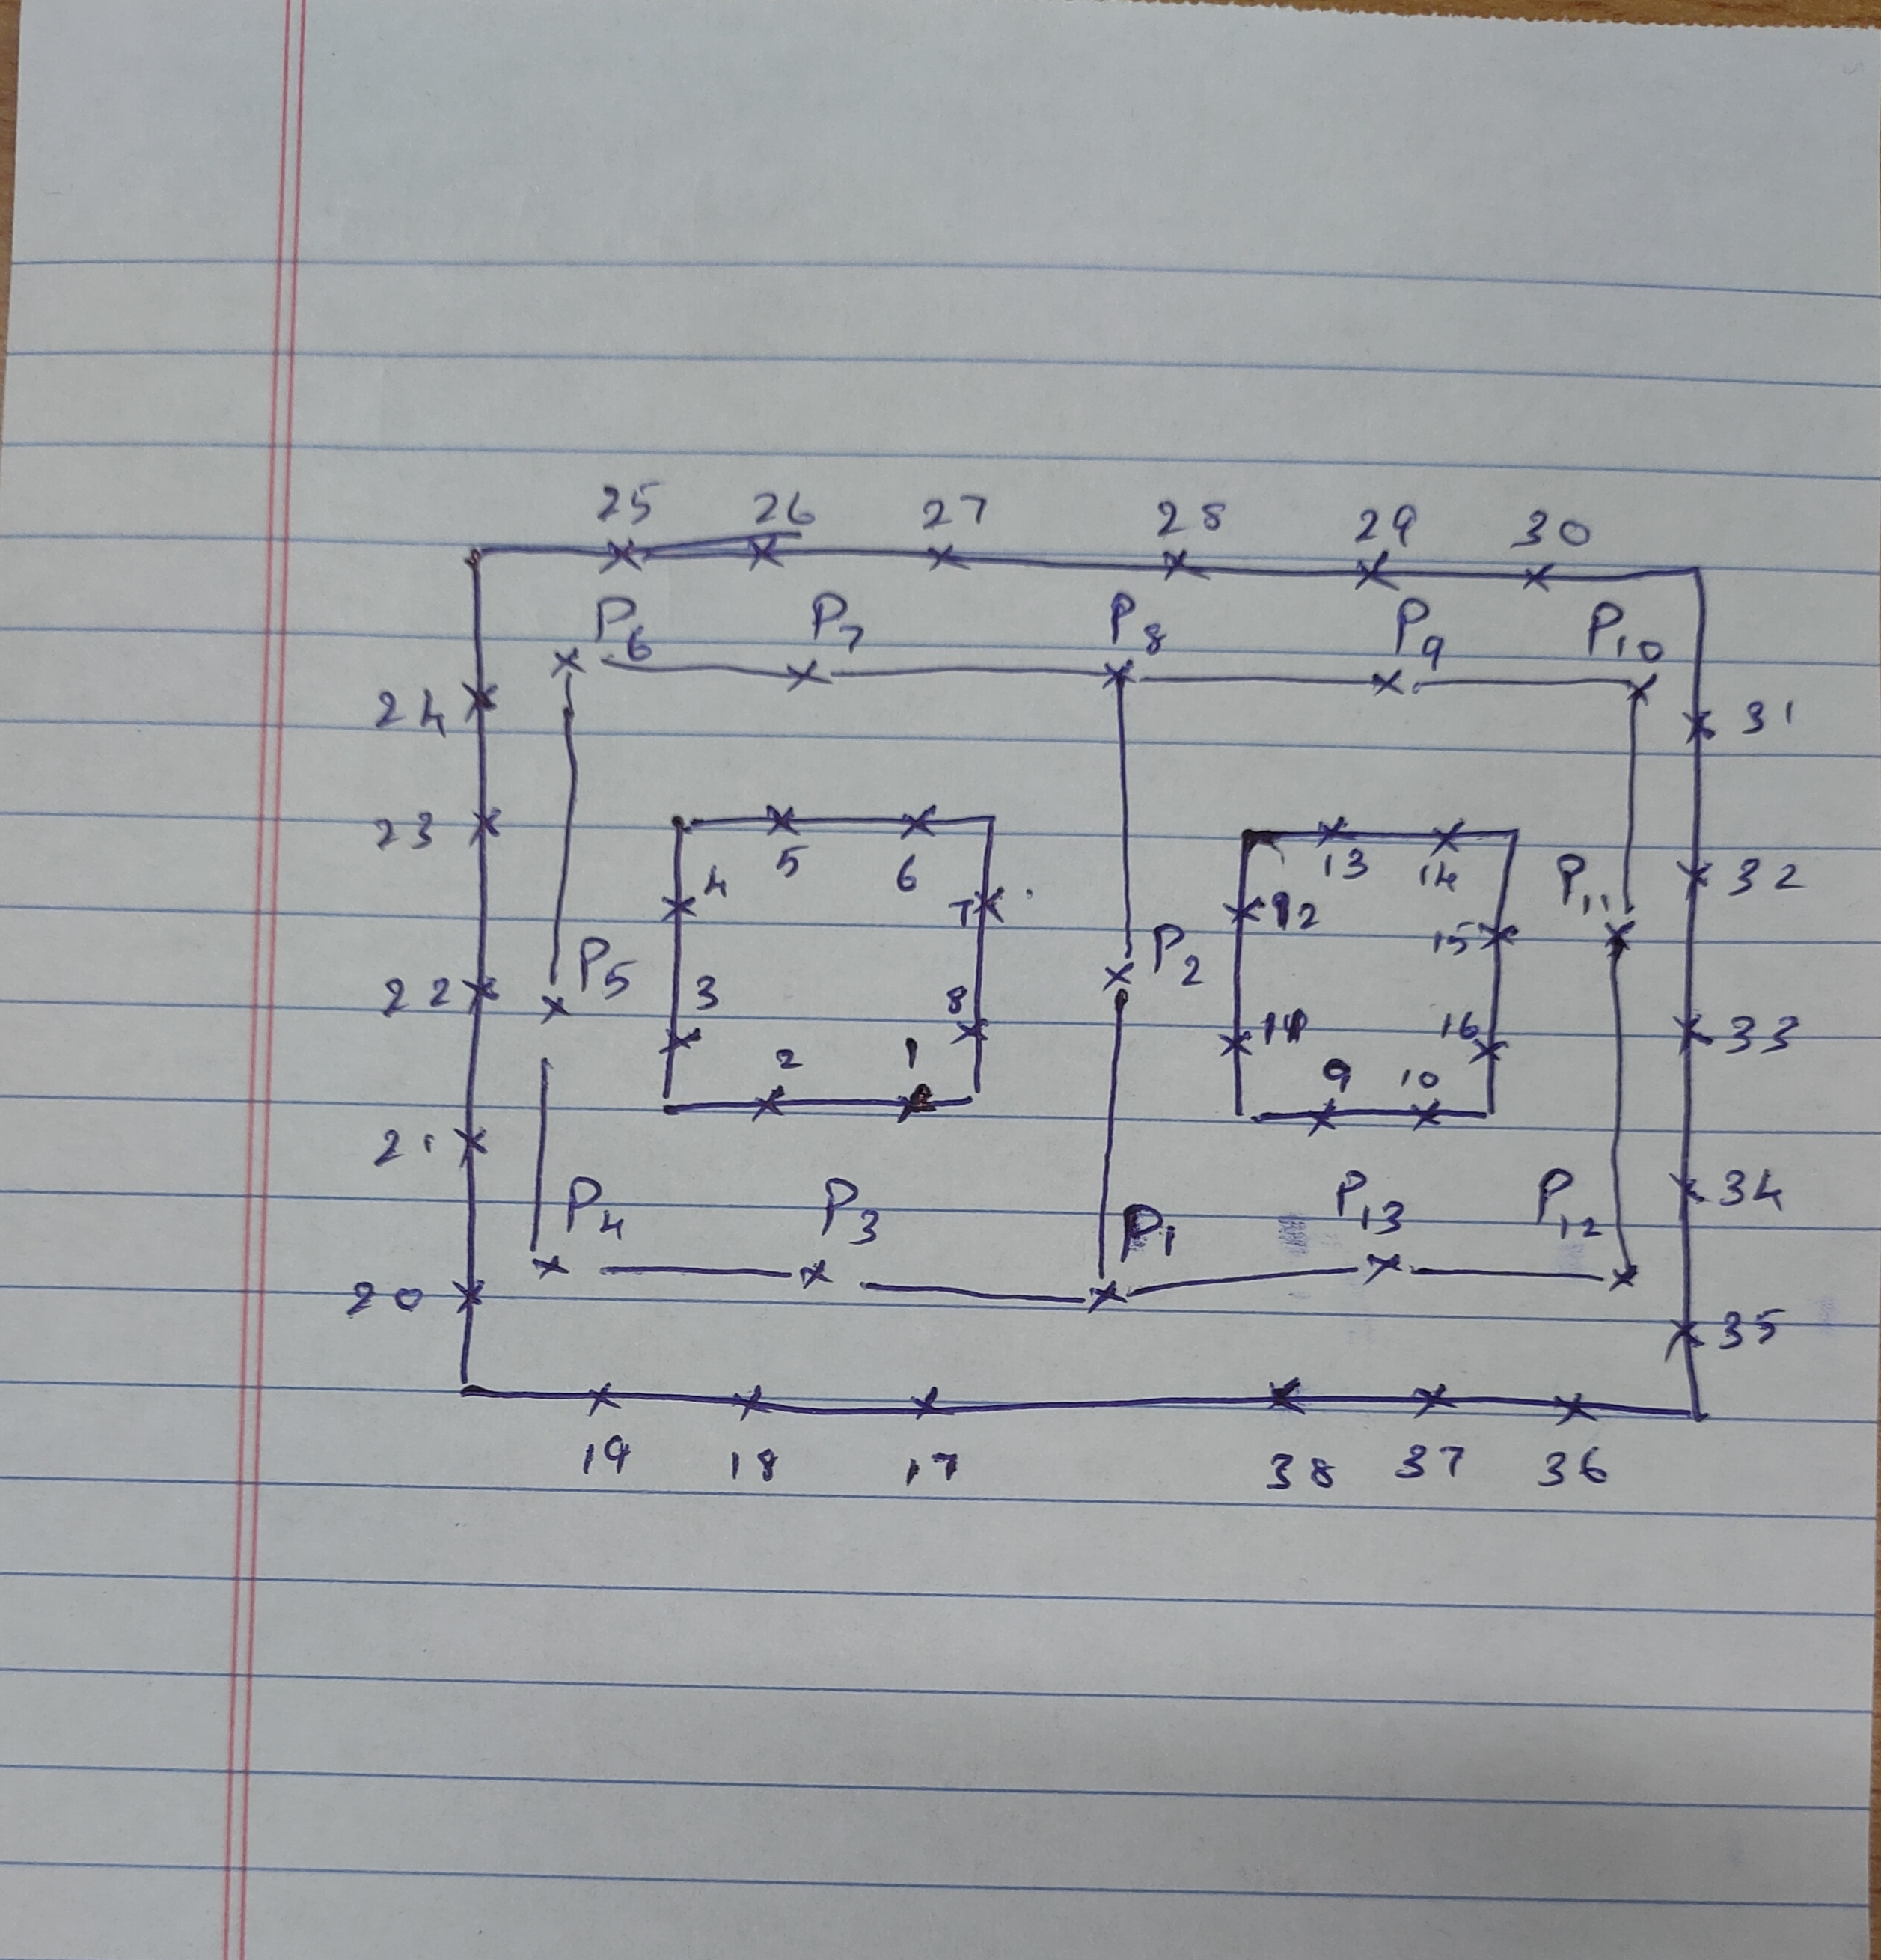 25 26 27 28 29 30
P6 P7 P8 P9 P10
24 31
23 5 6 13 14 32
4 7 12 15 P11
22 P5 3 8 P2 16 33
2 1 9 10
21 34
P4 P3 P1 P13 P12
20 35
19 18 17 38 37 36